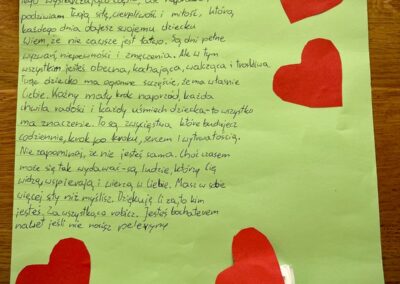 podziwiam Twoją siłę, cierpliwość i miłość, którą
każdego dnia dajesz swojemu dziecku
Wiem, że nie zawsze jest łatwo. Są dni pełne
wyzwań, niepewności i zmęczenia. Ale w tym
wszystkim jesteś obecna, kochająca, walcząca i troskliwa.
Twoje dziecko ma ogromne szczęście, że ma właśnie
Ciebie. Każdy mały krok naprzód, każda
chwila radości i każdy uśmiech dziecka - to wszystko
ma znaczenie. To są zwycięstwa, które budujesz
codziennie, krok po kroku, sercem i wytrwałością.
Nie zapominaj, że nie jesteś sama. Choć czasem
może się tak wydawać - są ludzie, którzy Cię
widzą, wspierają i wierzą w Ciebie. Masz w sobie
więcej siły niż myślisz. Dziękuję Ci za to kim
jesteś. Za wszystko co robisz. Jesteś bohaterem
nawet jeśli nie nosisz peleryny